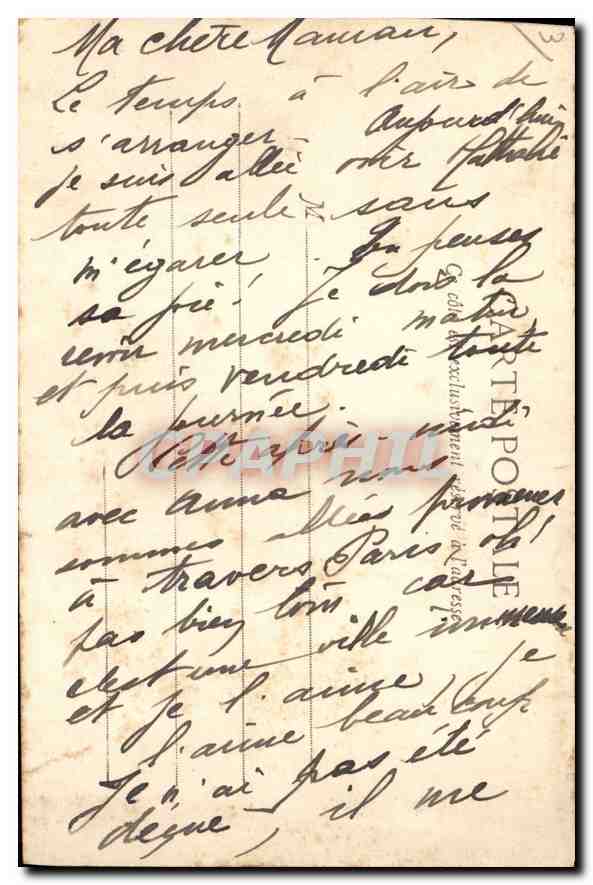 Ma chère Maman,
Le temps à l'air de
s'arranger - Aujourd'hui
je suis allée voir Nathalie
toute seule sans
m'égarer. Tu penses
sa joie! Je dois la
revoir mercredi matin
et puis vendredi toute
la journée.
Cette après-midi
avec Anna nous
sommes allées promener
à travers Paris oh!
pas bien loin car
c'est une ville immense
et je l'aime, je
l'aime beaucoup
Je n'ai pas été
déçue, il me
3
CARTE POSTALE
Ce côté est exclusivement réservé à l'adresse
CARAPHIL